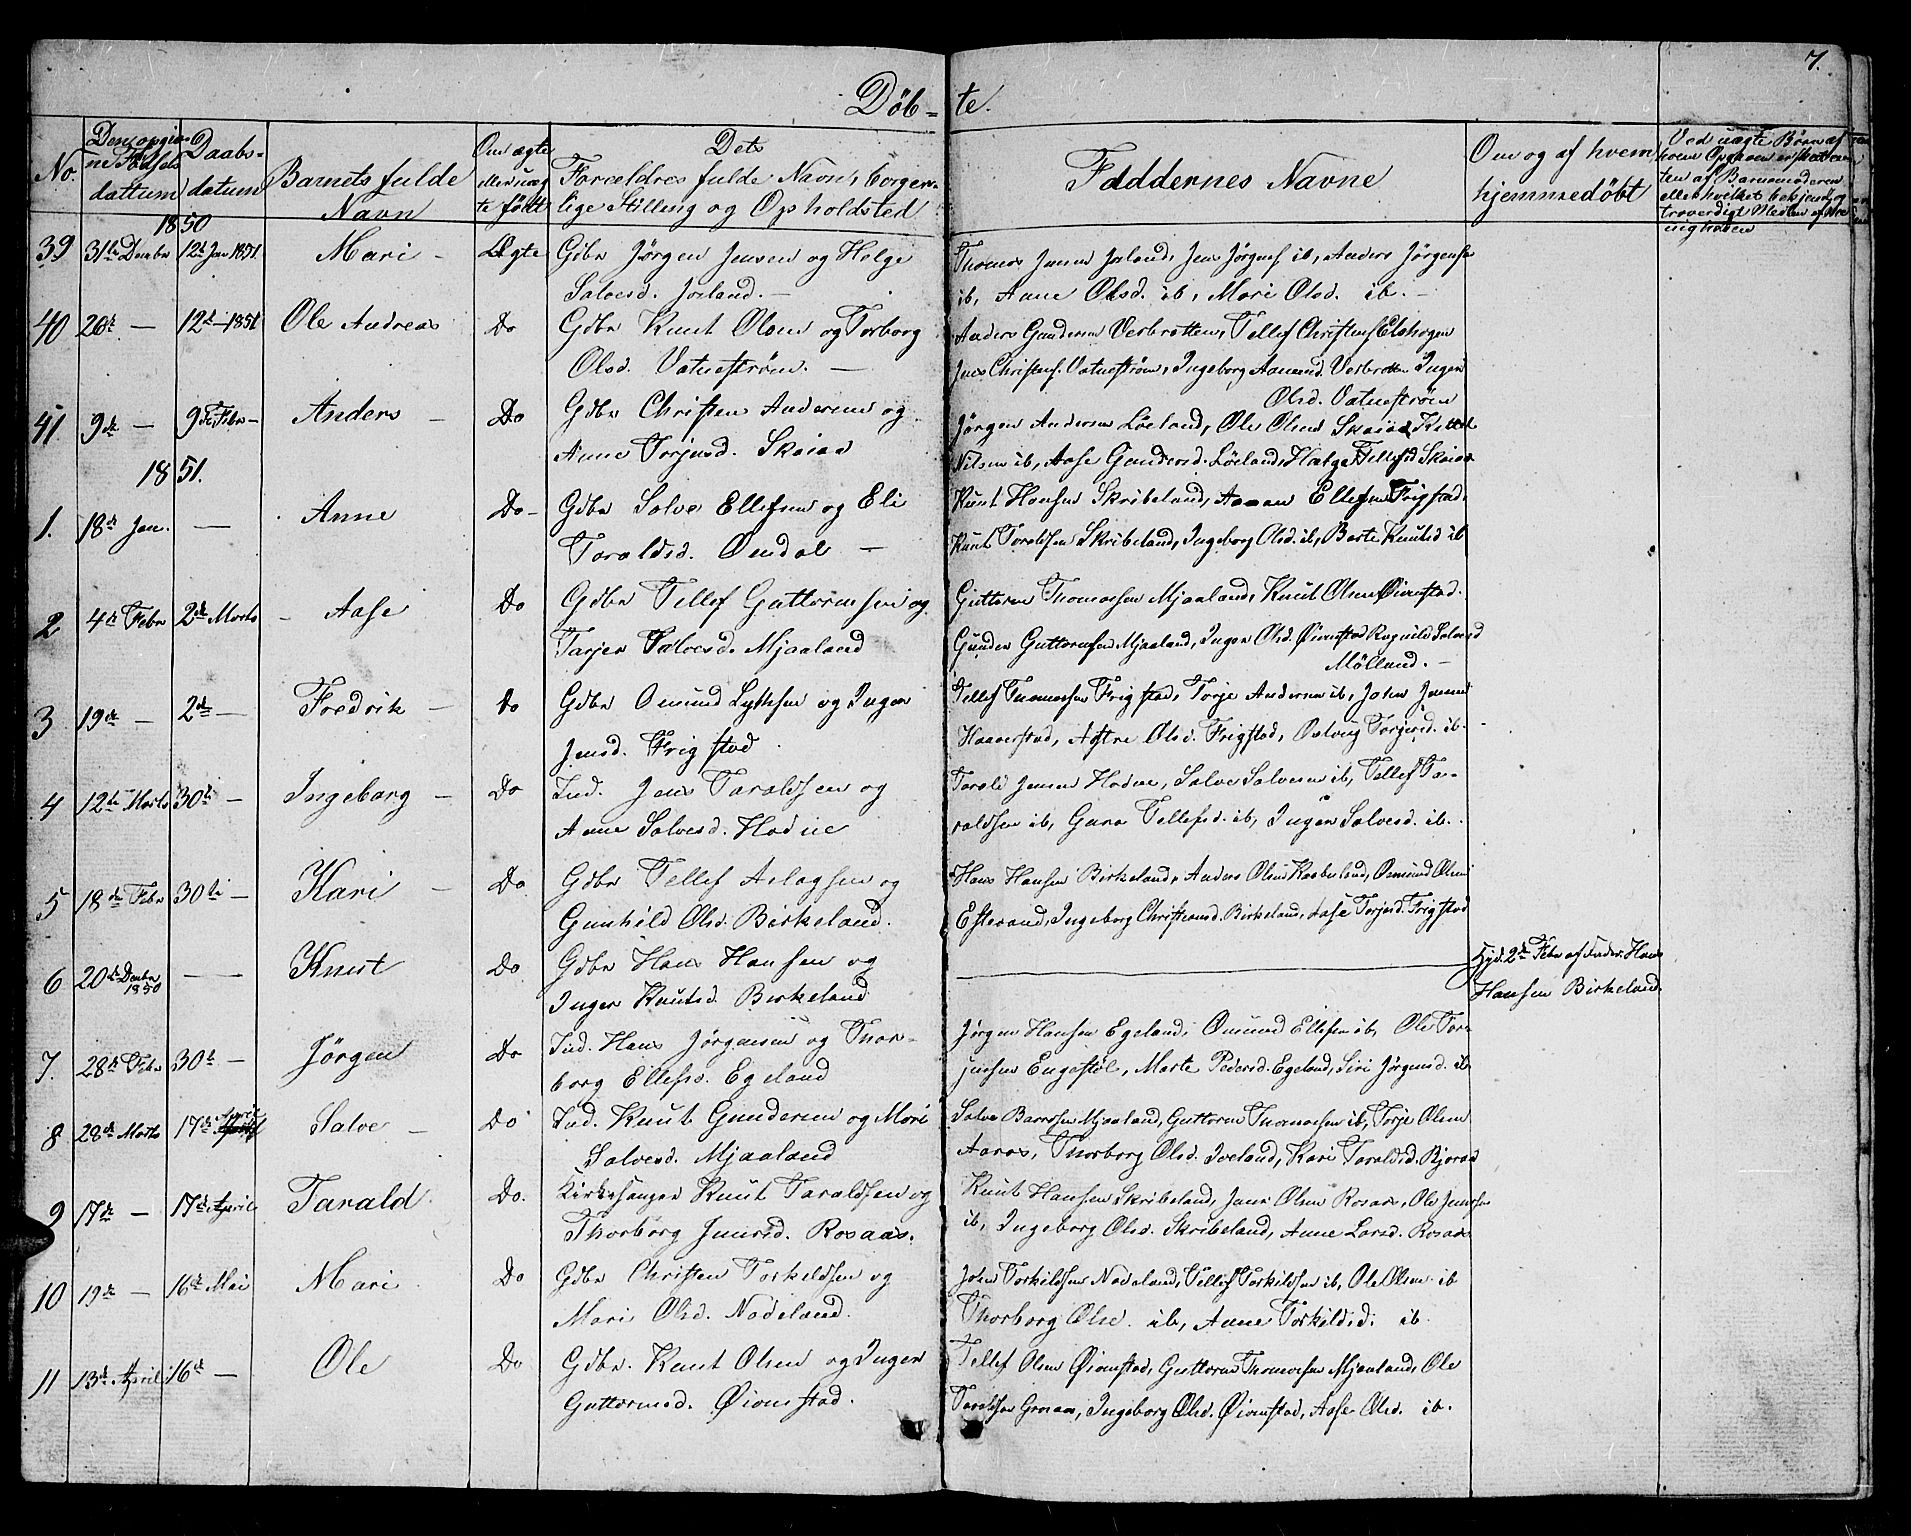 7.
Døb= te.
No.
Den opgiv-
ne Fødsels
dattum
Daabs-
datum
Barnets fulde
Navn
Om ægte
eller uæg
te født
Dets
Forældres fulde Navn, borger-
lige Stilling og Opholdsted
Faddernes Navne
Om og af hvem
hjemmedøbt
Ved uægte Børn af
hvem Opgaven er skeet
ten af Barnemoderen
eller hvilket bekjendt og
troverdigt Medlem af Me
nigheden
1850
39 31te Decmbr 12te Jan 1851 Mari - Ægte Gdbr Jørgen Jensen og Helge
Salvesd. Joreland. -
Thomas Jensen Joreland, Jens Jørgens ib, Anders Jørgensen
ib, Anne Olsd. ib, Mari Olsd. ib. -
40 26de - 12te - 1851 Ole Andreas Do Gdbr Knut Olsen og Torborg
Olsd. Vatnestrøm. -
Anders Gundersen Verbrotten, Tellef Christens Elshogen
Jens Christens. Vatnestrøm, Ingeborg Aamund. Verbrotten Inger
Olsd. Vatnestrøm
41 9de - 9de Febr - Anders - Do Gdbr Christen Andersen og
Anne Torjusd. Skaiaa
Jørgen Andersen Löeland, Ole Olsen Skaiaa, Kittel
Nilsen ib, Aase Gundersd. Löeland, Helge Tellefsd Skaiaa
1851.
1. 18de Jan. - Anne Do - Gdbr Salve Ellefsen og Eli
Taraldsd. Omdal -
Knut Hansen Skribeland, Aanen Ellefsen Frigstad,
Knut Taraldsen Skribeland, Ingeborg Olsd. ib, Berte Knutsd ib
2 4de Febr 2de Marts - Aase Do Gdbr Tellef Guttormsen og
Tarjer Salvesd. Mjaaland
Guttorm Thomassen Mjaaland, Knut Olsen Øiomstad.
Gunder Guttormsen Mjaaland, Inger Olsd. Øiomstad Ragnild Salvesd
Mölland. -
3 19de - 2de - Fredrik - Do Gdbr Omund Lykksen og Inger
Jensd. Frigstad
Tellef Tomassen Frigstad, Torje Andersen ib, John Jensen
Haaverstad, Astre Olsd. Frigstad, Torjersd. ib.
4 12te Marts 30te - Ingeborg - Do Ind. Jens Taraldsen og
Anne Salvesd. Hodne
Tarald Jensen Hodne, Salve Salvesen ib, Tellef Ta-
raldsen ib, Guro Tellefsd. ib, Inger Salvesd. ib.
5 18de Febr 30te - Kari - Do Gdbr Tellef Aslagsen og
Gunhild Olsd. Birkeland.
Hans Hansen Birkeland, Anders Olsen Kaaberland, Osmund Olsen
Efterand, Ingeborg Christensd. Birkeland, Aase Torjusd. Frigstad
6 20de Decbr 1850 - Knut Do Gdbr Hans Hansen og
Inger Knutsd. Birkeland
Hjd. 2de Febr af Fader. Hans
Hansen Birkeland.
7. 28de Febr 30te - Jørgen Do Ind. Hans Jørgensen og Thor-
borg Ellefsd. Egeland
Jørgen Hansen Egeland, Omund Ellefsen ib, Ole Tor-
jussen Engestøl, Marte Pedersd. Egeland, Siri Jørgensd. ib
8 28de Marts 17de April Salve - Do Ind. Knut Gundersen og Mari
Salvesd. Mjaaland
Salve Mjaaland, Guttorm Thomassen ib, Torje Olsen
Aaras, Thorborg Olsd. Iveland, Kari Taraldsd. Bjoraa
9 17de - 17de April Tarald. Do. Kirkesanger Knut Taraldsen og
Thorborg Jensd. Rosaas.
Knut Hansen Skribeland, Jens Olsen Rosaas, Ole Jensen
ib, Ingeborg Olsd. Skribeland, Anne Larsd. Rosaas
10 19de - 16de Mai Mari Do Gdbr Christen Torkildsen og
Mari Olsd. Nodeland.
John Torkildsen Nodeland, Tellef Torkildsen ib, Ole Olsen ib
Thorborg Olsd. ib, Anne Torkildsd. ib.
11 13de April 16de - Ole Do Gdbr. Knut Olsen og Inger
Guttormsd. Øiomstad.
Tellef Olsen Øiomstad, Guttorm Thomassen Mjaaland, Ole
Taraldsen Groaas, Ingeborg Olsd. Øiomstad, Aase Olsd. ib.